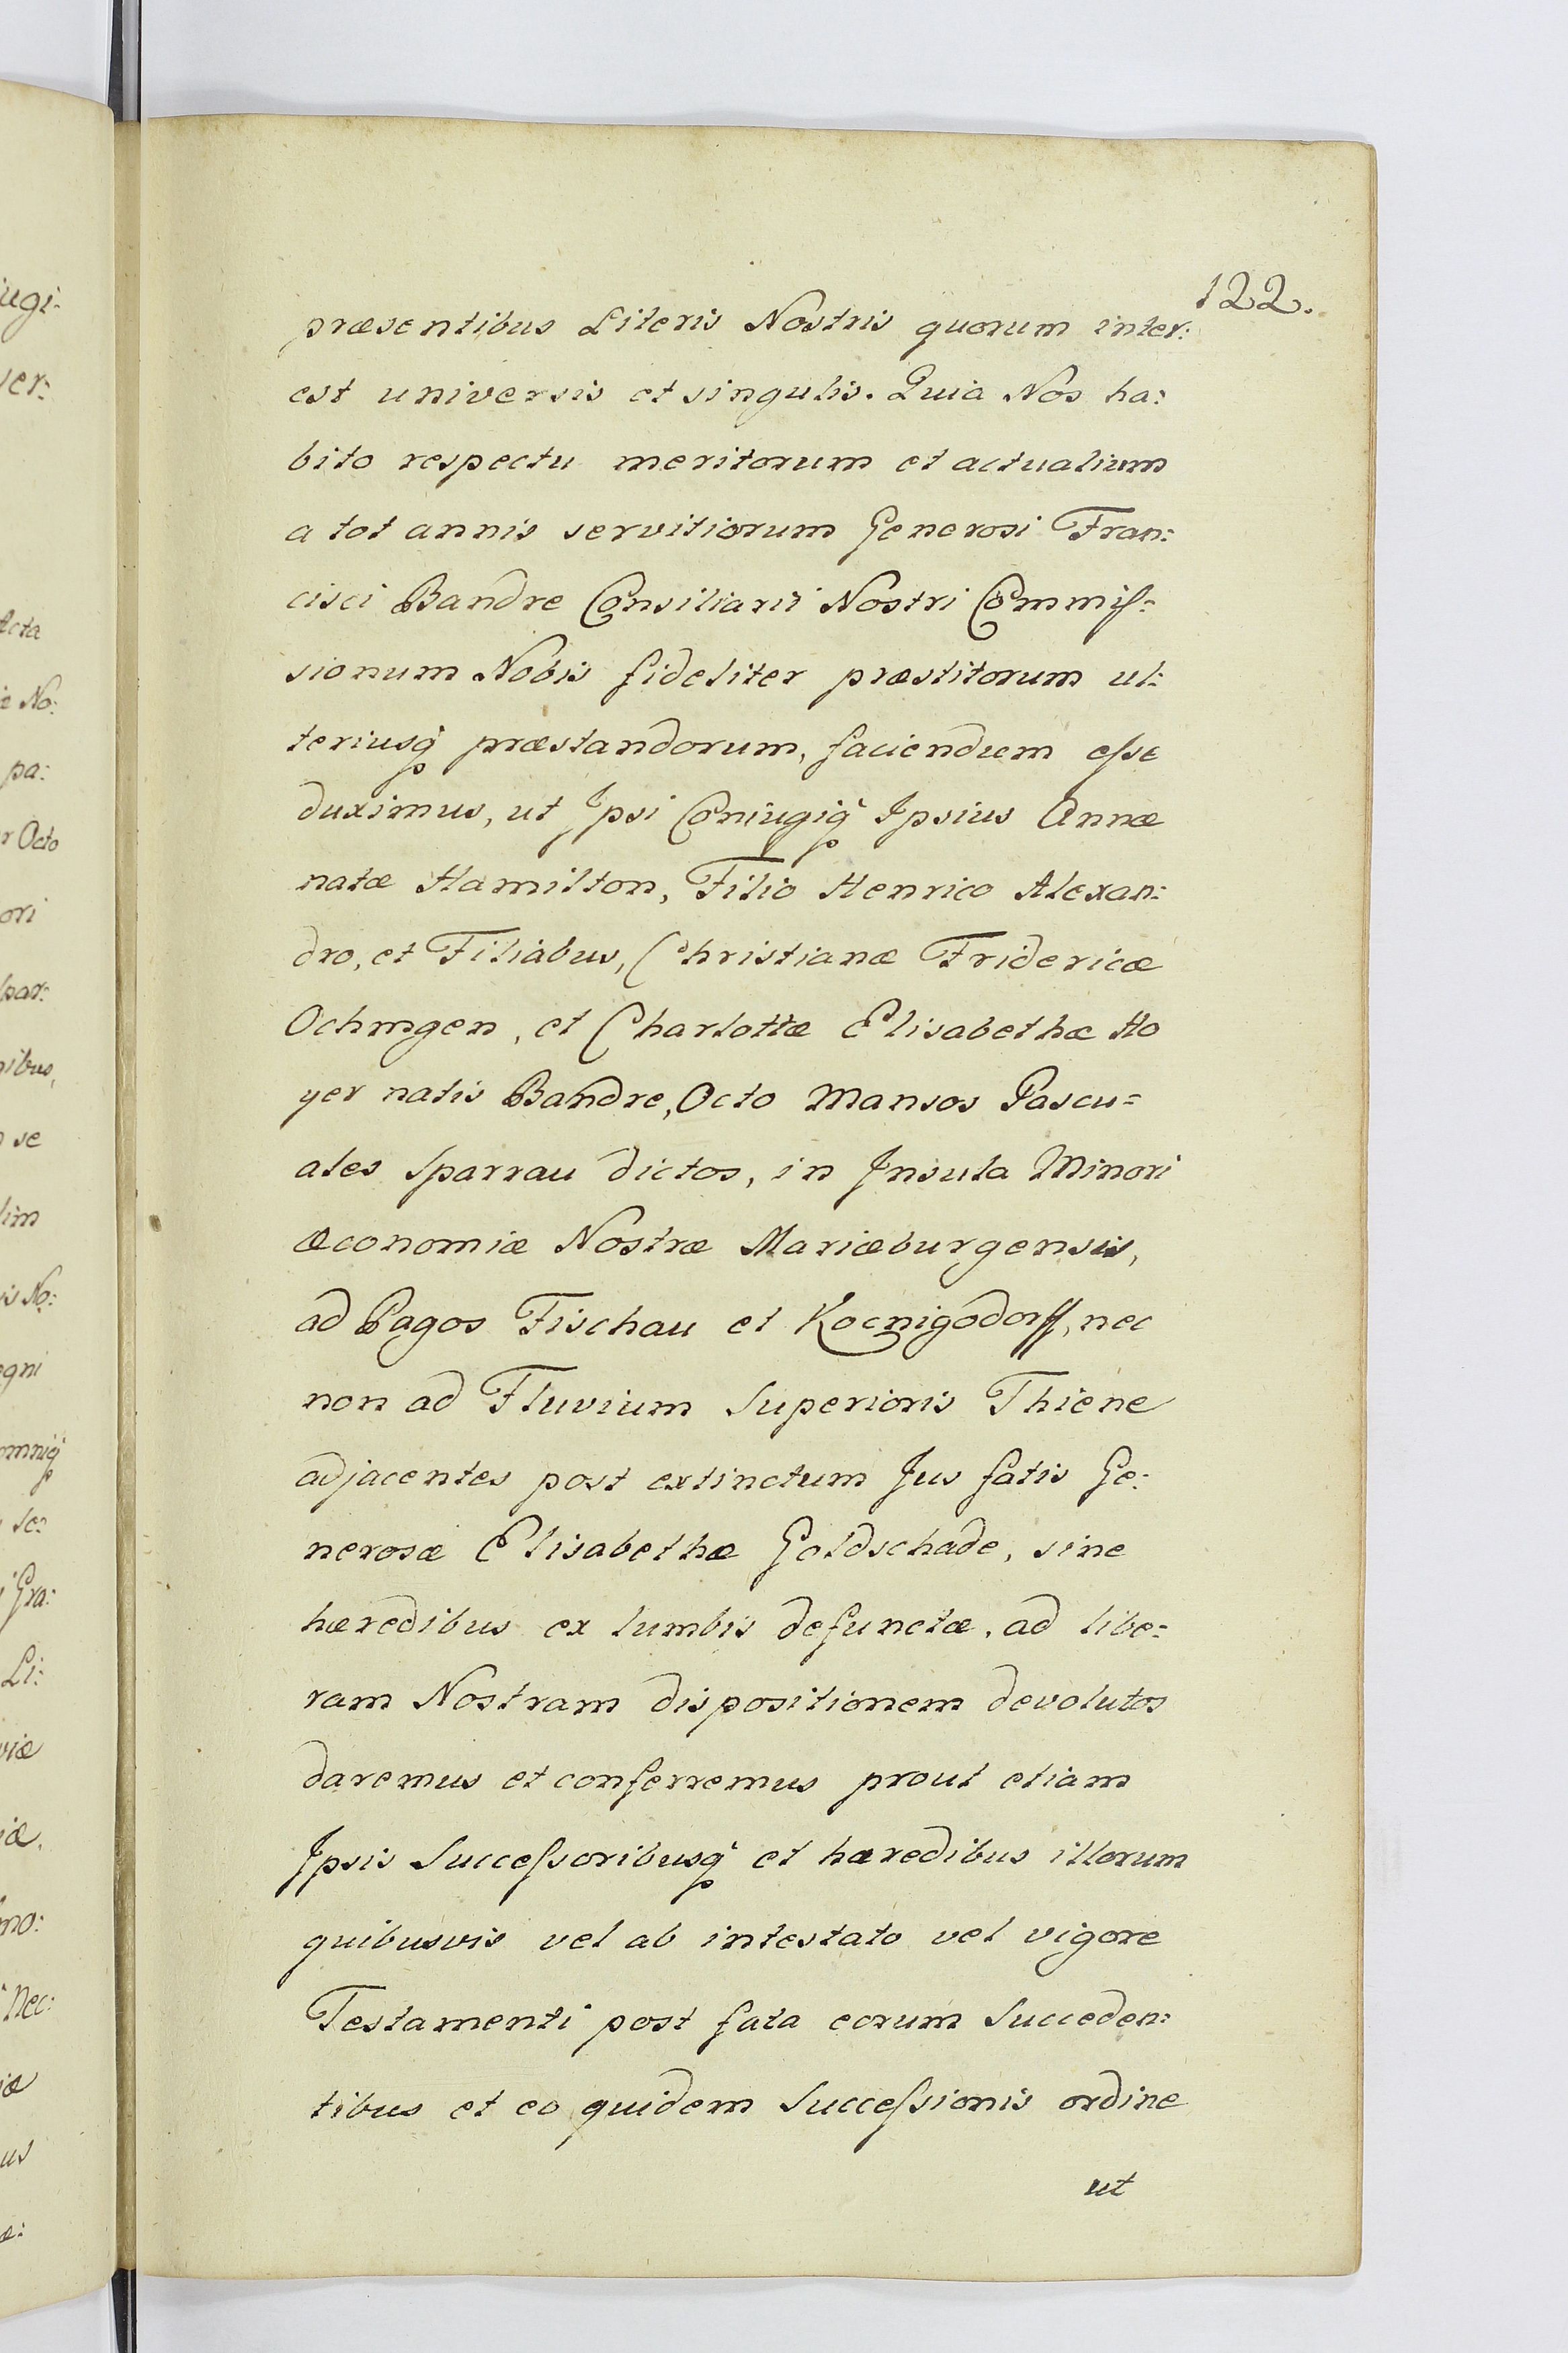 122.
præsentibus Literis Nostris quorum inter:
est universis et singulis. Quia Nos ha:
bito respectu meritorum et actualium
a tot annis servitiorum Generosi Fran:
cisci Bandre Consiliarii Nostri Commiſ:
sionum Nobis fideliter præstitorum ul:
teriusq̀ præstandorum, faciendum eſse
duximus, ut Ipsi Coniugiq̀ Ipsius Annæ
natæ Hamilton, Filio Henrico Alexan:
dro, et Filiabus, Christianæ Fridericæ
Ochmgen, et Charlottæ Elisabethæ Ho
yer natis Bandre, Octo Mansos Pascu=
ales Sparrau dictos, in Insula Minori
Œconomiæ Nostræ Mariæburgensis,
ad Pagos Fischau et Koenigsdorff, nec
non ad Fluvium Superioris Thiene
adjacentes post extinctum Jus fatis Ge:
nerosæ Elisabethæ Goldschade, sine
hæredibus ex lumbis defunctæ, ad libe:
ram Nostram dispositionem devolutos
daremus et conferremus prout etiam
Ipsis Succeſsoribusq̀ et hæredibus illorum
quibusvis vel ab intestato vel vigore
Testamenti post fata eorum Succeden:
tibus et eo quidem Succeſsionis ordine
ut
ugi:
ver:
Acta
No:
pa:
Octo
ori
par:
ibus,
se
lim
is No:
egni
omniq̀
se:
Gra:
Li:
viæ
iæ.
mo:
Nec:
iæ
us
æ: